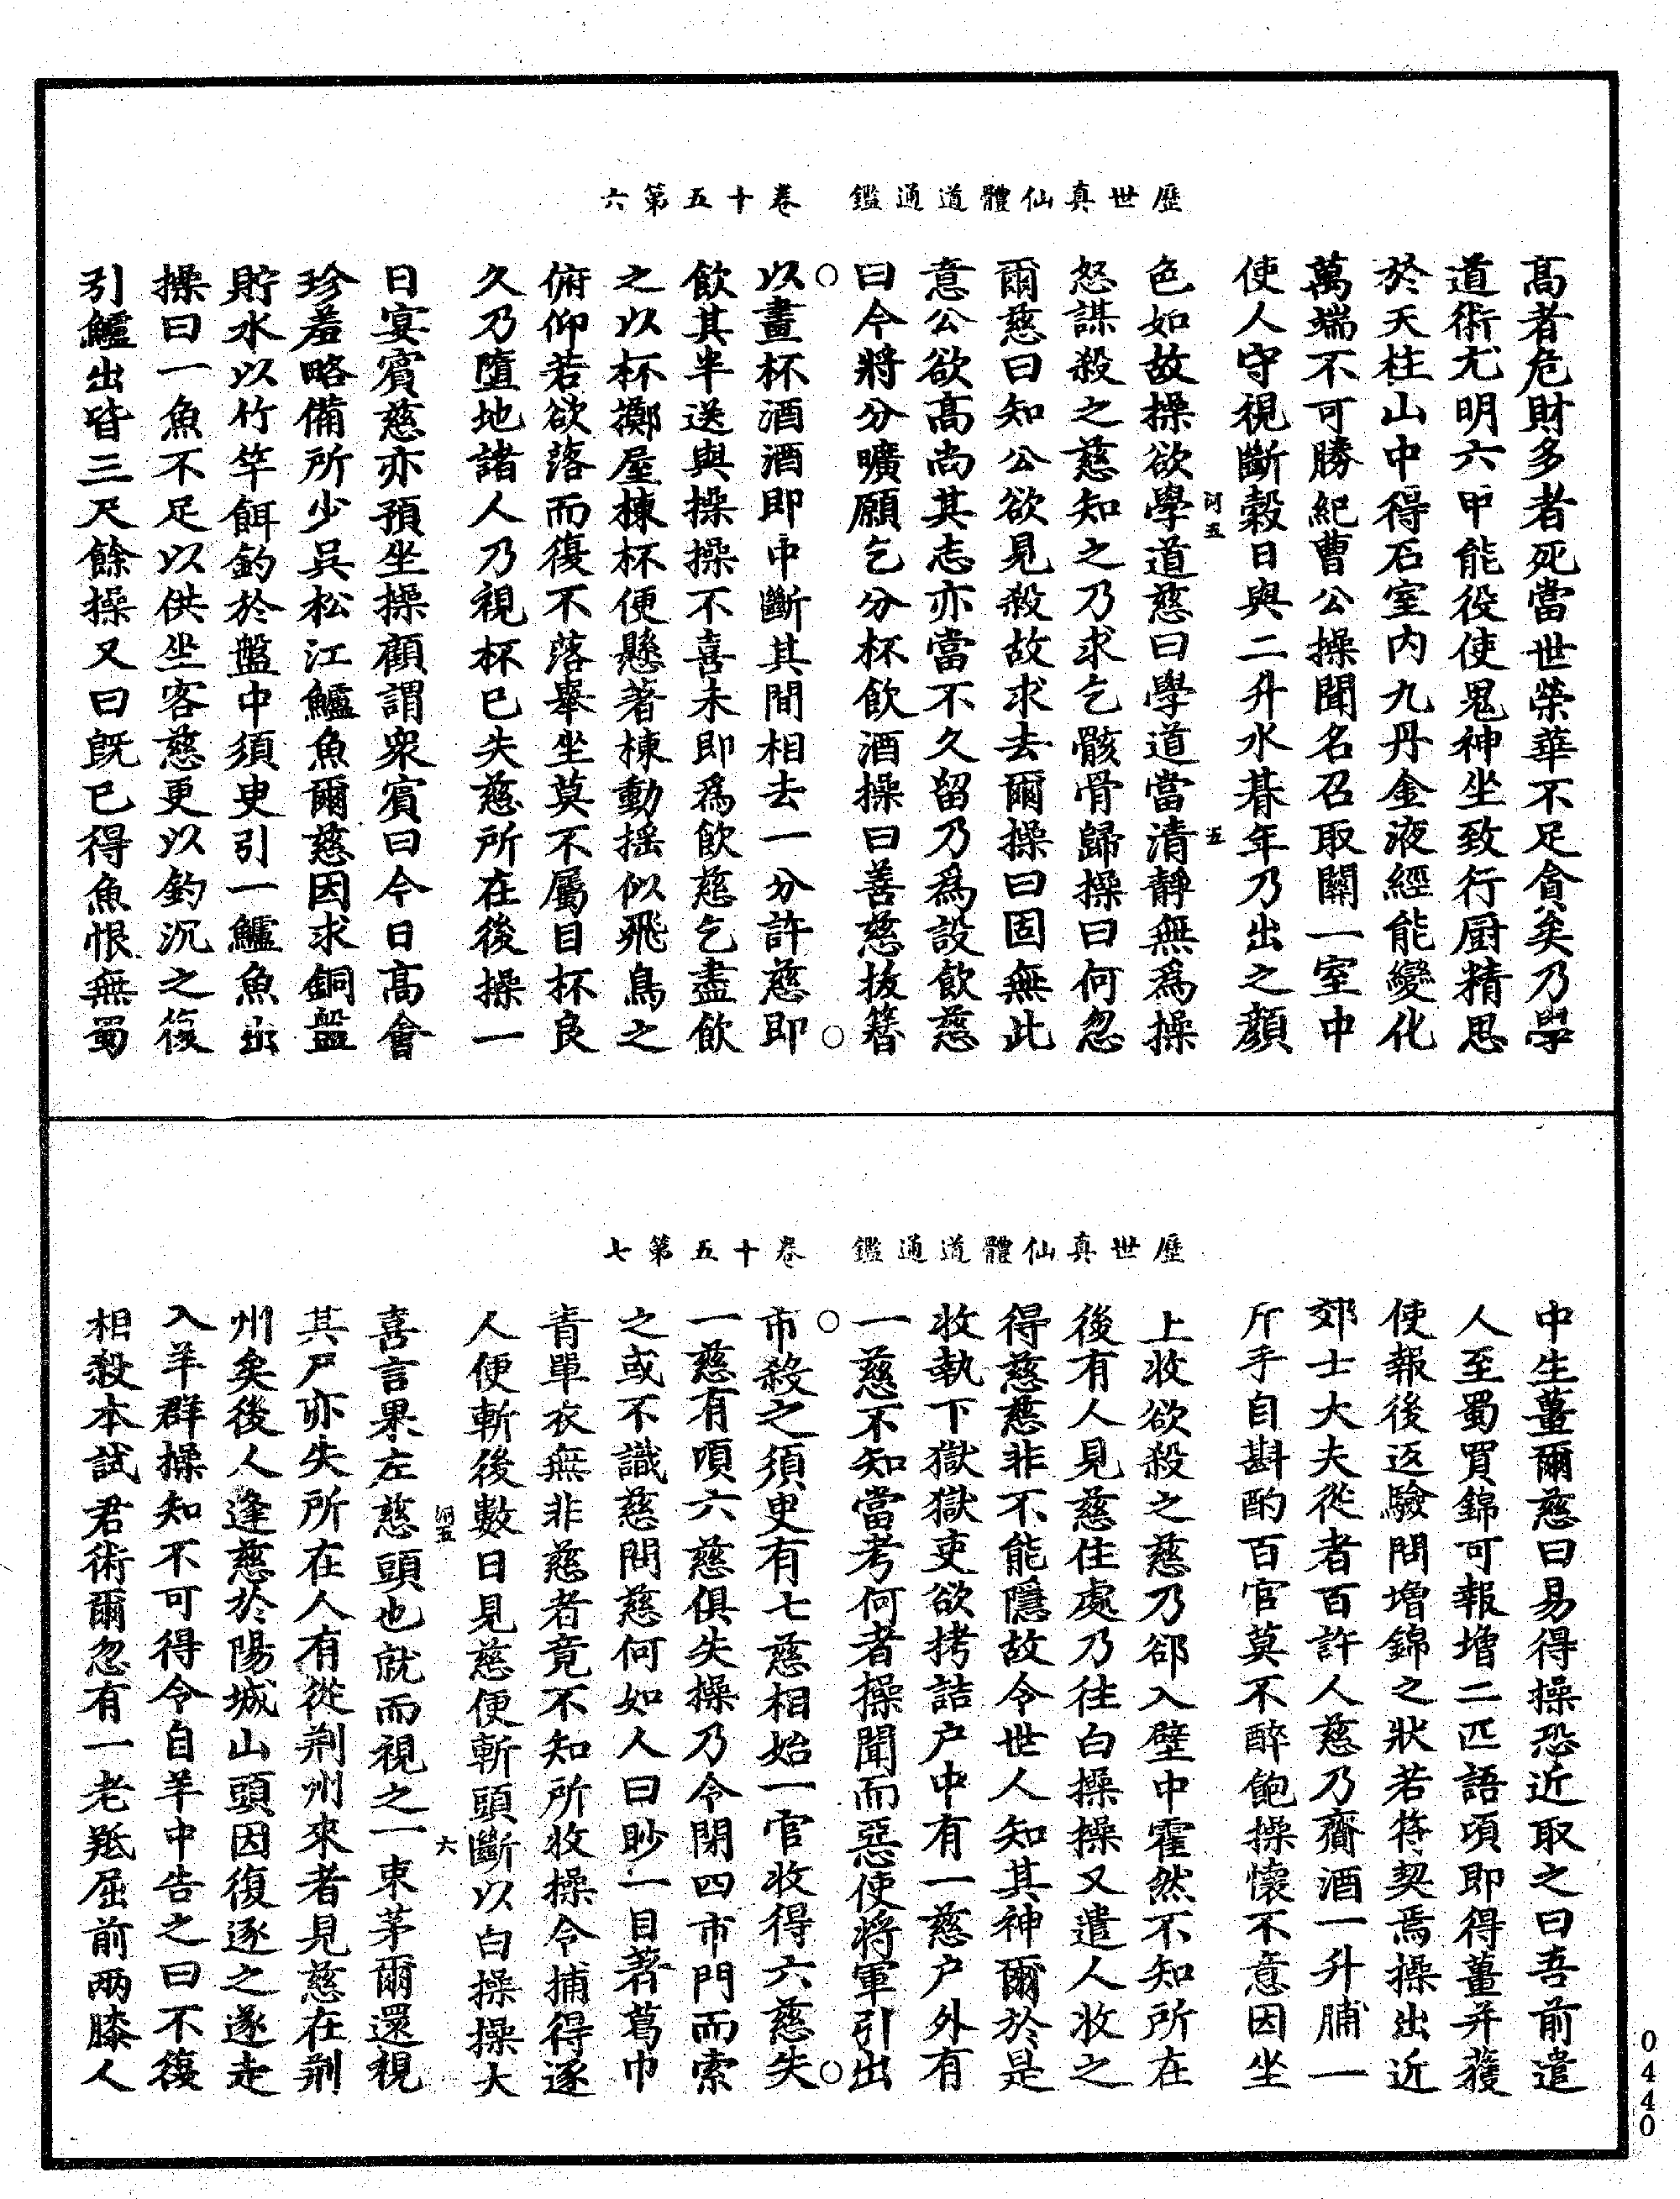 歷世真仙體道通鑑　卷十五第六
高者危財多者死當世榮華不足貪矣乃學
道術尤明六甲能役使鬼神坐致行厨精思
於天柱山中得石室内九丹金液經能變化
萬端不可勝紀曹公操聞名召取闗一室中
使人守視斷穀日與二升水朞年乃出之顔
河五　五
色如故操欲學道慈曰學道當清靜無爲操
怒謀殺之慈知之乃求乞骸骨歸操曰何忽
爾慈曰知公欲見殺故求去爾操曰固無此
意公欲高尚其志亦當不久留乃爲設飲慈
曰今將分曠願乞分杯飲酒操曰善慈拔簪
○　○
以畫杯酒酒即中斷其間相去一分許慈即
飲其半送與操操不喜未即爲飲慈乞盡飲
之以杯擲屋棟杯便懸著棟動摇似飛鳥之
俯仰若欲落而復不落舉坐莫不屬目杯良
久乃墮地諸人乃視杯已失慈所在後操一
日宴賓慈亦預坐操顧謂衆賓曰今日高會
珍羞略備所少吳松江鱸魚爾慈因求銅盤
貯水以竹竿餌釣於盤中須臾引一鱸魚出
操曰一魚不足以供坐客慈更以釣沉之復
引鱸出皆三尺餘操又曰既已得魚恨無蜀
歷世真仙體道通鑑　卷十五第七
中生薑爾慈曰易得操恐近取之曰吾前遣
人至蜀買錦可報增二匹語頃即得薑并獲
使報後返驗問增錦之狀若符契焉操出近
郊士大夫從者百許人慈乃齎酒一升脯一
斤手自斟酌百官莫不醉飽操懷不意因坐
上收欲殺之慈乃郤入壁中霍然不知所在
後有人見慈住處乃往白操操又遣人收之
得慈慈非不能隱故令世人知其神爾於是
收執下獄獄吏欲拷詰户中有一慈户外有
一慈不知當考何者操聞而惡使將軍引出
○　○
市殺之須臾有七慈相始一官收得六慈失
一慈有頃六慈俱失操乃令閉四市門而索
之或不識慈問慈何如人曰眇一目著葛巾
青單衣無非慈者竟不知所收操令捕得逐
人便斬後數日見慈便斬頭斷以白操操大
河五　六
喜言果左慈頭也就而視之一束茅爾還視
其尸亦失所在人有從荆州來者見慈在荆
州矣後人逢慈於陽城山頭因復逐之遂走
入羊群操知不可得令自羊中告之曰不復
相殺本試君術爾忽有一老羝屈前兩膝人
0440